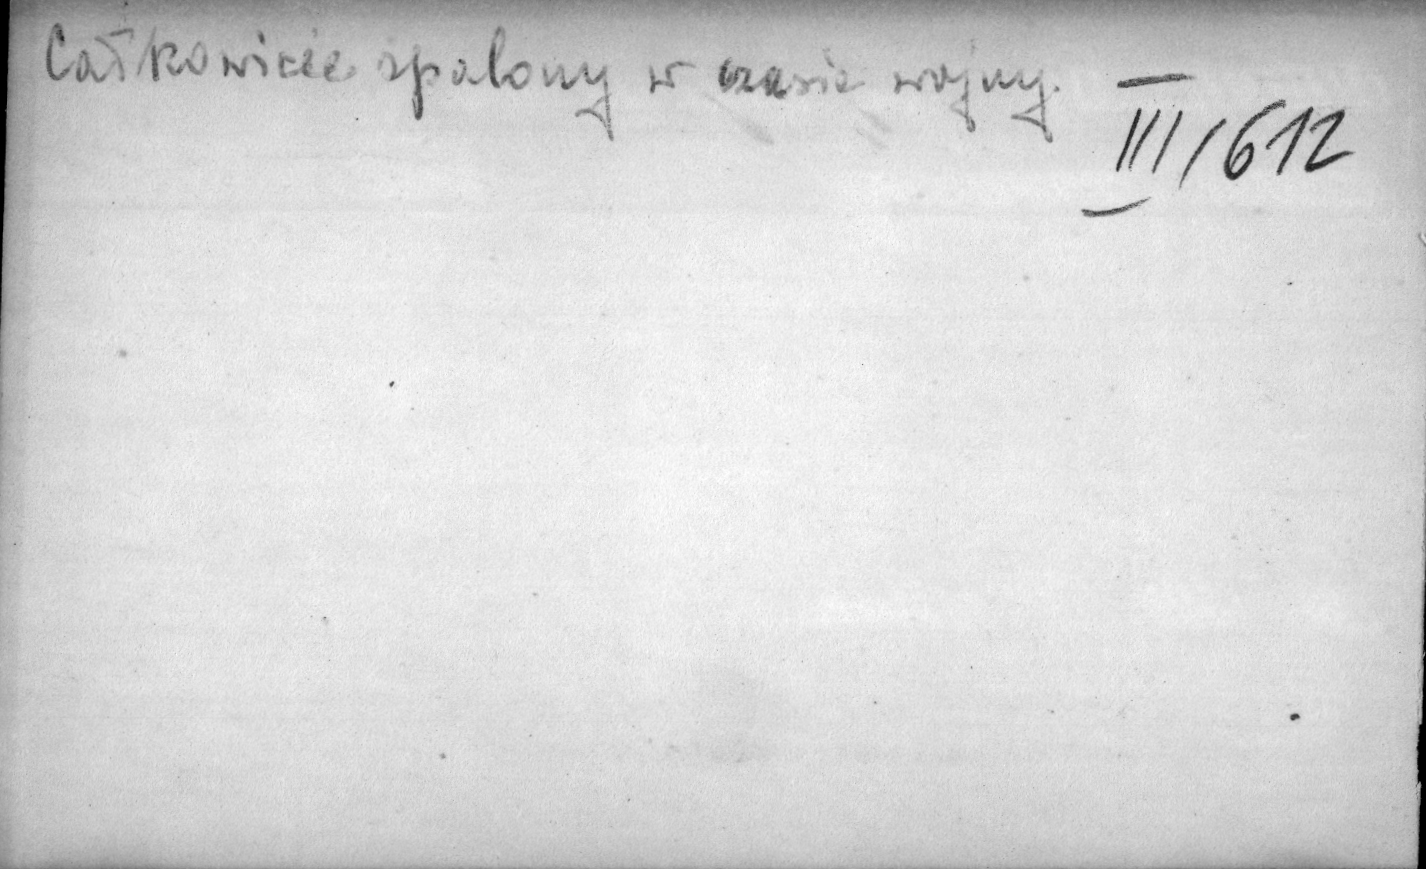 Całkowicie spalony w czasie wojny.
III/612